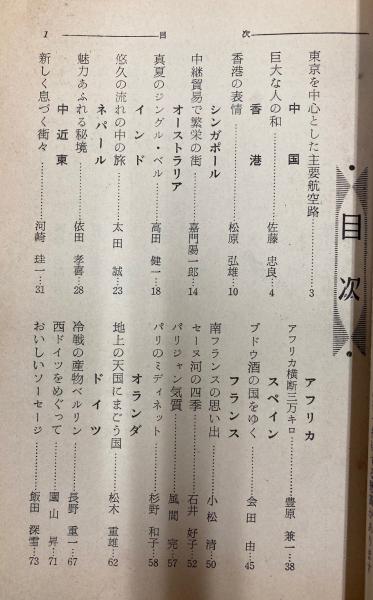 1　目次
目次
東京を中心とした主要航空路……3
中国
巨大な人の和……佐藤忠良…4
香港
香港の表情……松原弘雄…10
シンガポール
中継貿易で繁栄の街……嘉門陽一郎…14
オーストラリア
真夏のジングル・ベル……高田健一…18
インド
悠久の流れの中の旅……太田誠…23
ネパール
魅力あふれる秘境……依田孝喜…28
中近東
新しく息づく街々……河崎珪一…31
アフリカ
アフリカ横断三万キロ……豊原兼一…38
スペイン
ブドウ酒の国をゆく……会田由…45
フランス
南フランスの思い出……小松清…50
セーヌ河の四季……石井好子…52
パリジャン気質……風間完…57
パリのミディネット……杉野和子…58
オランダ
地上の天国にまごう国……松木重雄…62
ドイツ
冷戦の産物ベルリン……長野重一…67
西ドイツをめぐって……園山昇…71
おいしいソーセージ……飯田深雪…73